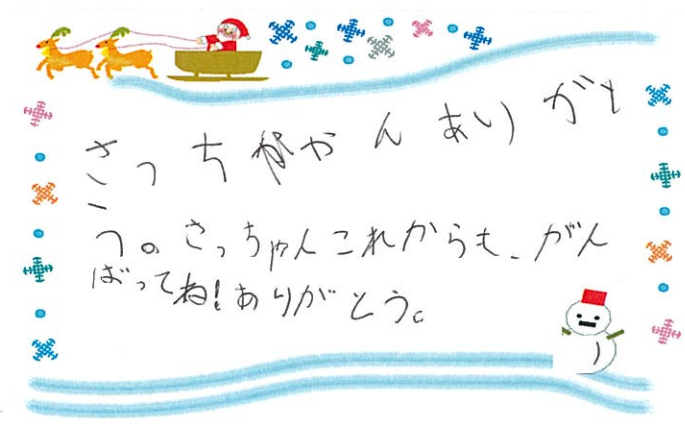 さっちゃんありがと
う。さっちゃんこれからも、がん
ばってね!ありがとう。